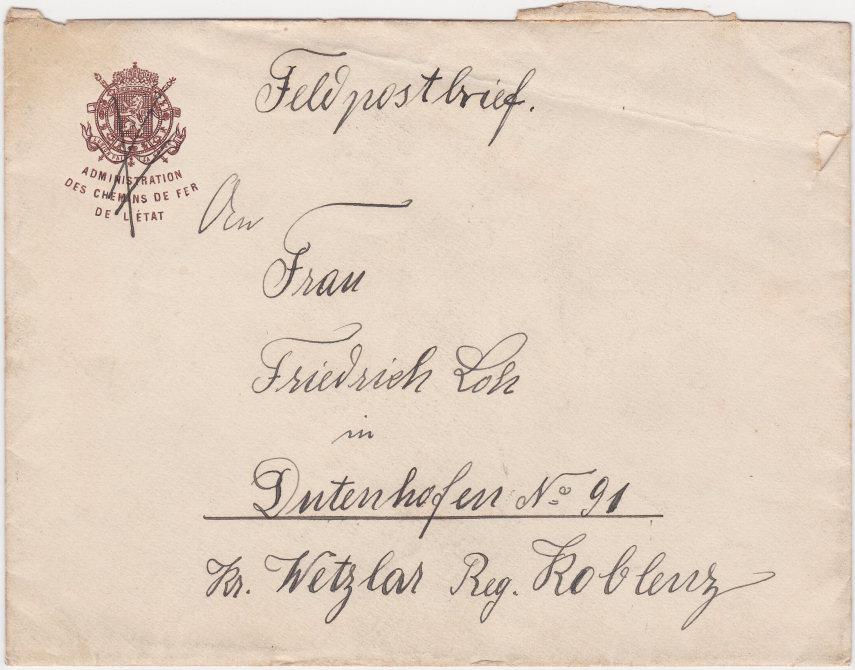 Feldpostbrief.
ADMINISTRATION
DES CHEMINS DE FER
DE L'ÉTAT
An
Frau
Friedrich Loh
in
Dutenhofen No 91
Kr. Wetzlar Reg. Koblenz